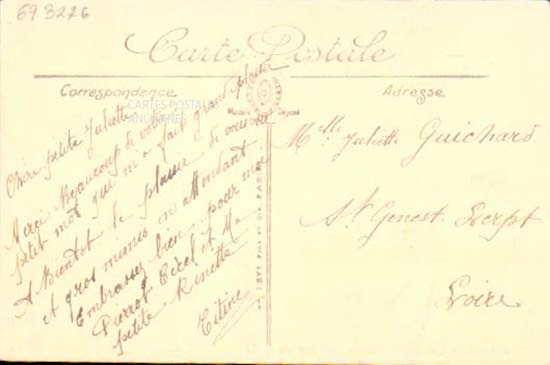 693226
Carte Postale
Correspondance
Adresse
CARTES POSTALES
ANCIENNES
Chère petite Juliette
Merci beaucoup de votre
petit mot qui m'a fait grand plaisir
A Bientôt le plaisir de vous voir
et gros mimis en attendant
Embrassez bien pour moi
Pierrot Cécel et Ma
petite Rinette
Titine
Melle Juliette Guichard
St Genest-Lerpt
Loire